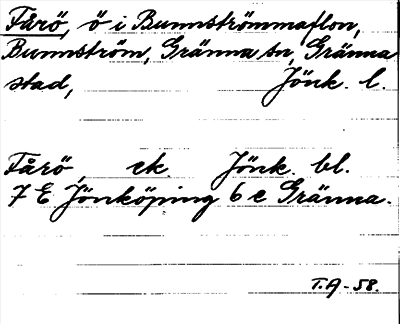 Fårö, ö i Bunnströmmaflon,
Bunnström, Gränna sn, Gränna
stad, Jönk. l.
Fårö, ek. Jönk. bl.
7 E Jönköping 6 e Gränna.
T.A-58.